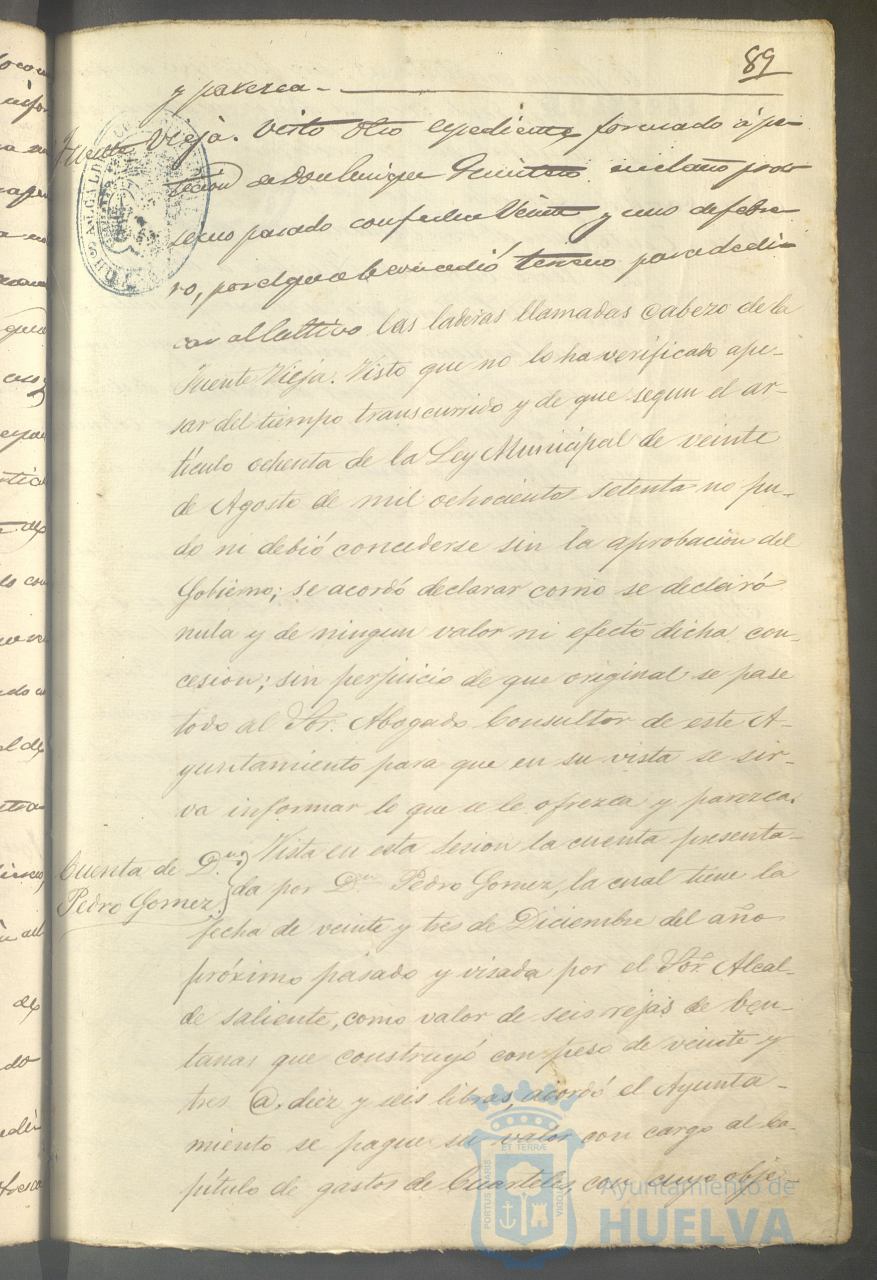 89
y parezca.
Fuente Vieja. Visto otro espediente formado á pe-
tición de Don Enrique Quintero en el año pró-
secimo pasado con fecha Veinte y uno de febre
ro, por el que se le concedió terreno para dedi-
car al Cultivo las laderas llamadas Cabezo de la
Fuente Vieja. Visto que no lo ha verificado ape-
sar del tiempo transcurrido y de que segun el ar-
tículo ochenta de la Ley Municipal de veinte
de Agosto de mil ochocientos setenta no pu-
do ni debió concederse sin la aprobacion del
Gobierno; se acordó declarar como se declaró
nula y de ningun valor ni efecto dicha con-
cesion; sin perjuicio de que original se pase
todo al Sor. Abogado Consultor de este A-
yuntamiento para que en su vista se sir-
va informar lo que se le ofrezca y parezca.
Cuenta de Dn.
Pedro Gomez.
Vista en esta Sesion la cuenta presenta-
da por Dn. Pedro Gomez, la cual tiene la
fecha de veinte y tres de Diciembre del año
próximo pasado y visada por el Sor. Alcal-
de saliente, como valor de seis rejas de ben-
tanas que construyó con peso de veinte y
tres @. diez y seis libras, acordó el Ayunta-
miento se pague su valor con cargo al Ca-
pítulo de gastos de Cuarteles, con cuyo obje-
PORTUS MARIS
ET TERRÆ
CUSTODIA
Ayuntamiento de
HUELVA